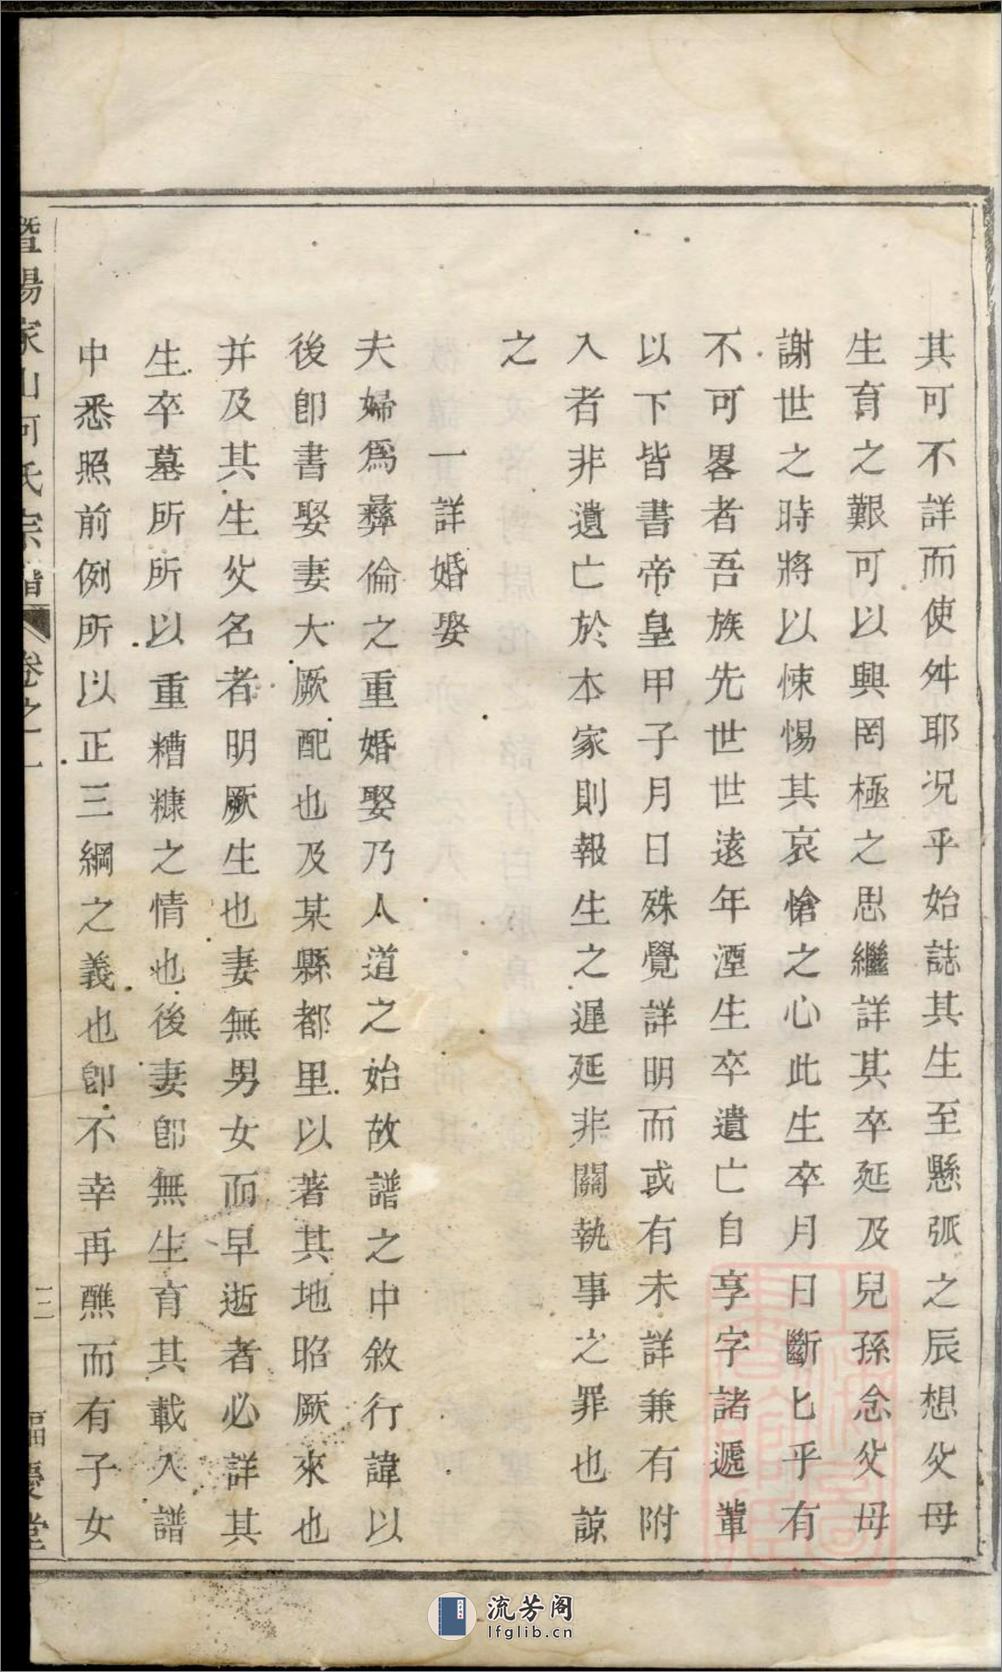 其可不詳而使舛耶况乎始誌其生至懸弧之辰想父母
生育之艱可以興罔極之思繼詳其卒延及兒孫念父母
謝世之時將以悚惕其哀愴之心此生卒月日斷匕乎有
不可畧者吾族先世世遠年湮生卒遺亡自享字諸遞軰
以下皆書帝皇甲子月日殊覺詳明而或有未詳兼有附
入者非遺亡於本家則報生之遲延非關執事之罪也諒
之
一詳婚娶
夫婦爲彝倫之重婚娶乃人道之始故譜之中敘行諱以
後卽書娶妻大厥配也及某縣都里以著其地昭厥來也
并及其生父名者明厥生也妻無男女而早逝者必詳其
生卒墓所所以重糟糠之情也後妻卽無生育其載入譜
中悉照前例所以正三綱之義也卽不幸再醮而有子女
暨陽家山何氏宗譜 卷之一 二 福慶堂
流芳阁
lfglib.cn